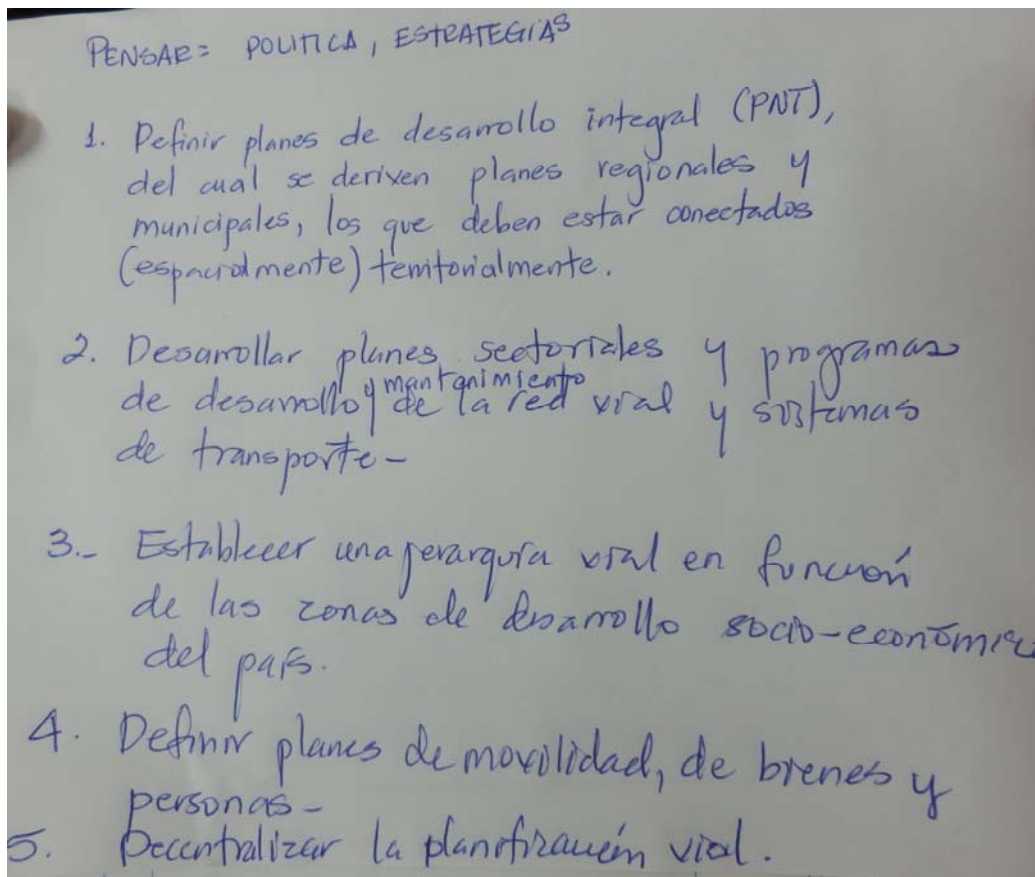 PENSAR= POLITICA, ESTRATEGIAS
1. Definir planes de desarrollo integral (PNT),
del cual se deriven planes regionales y
municipales, los que deben estar conectados
(espacialmente) territorialmente.
2. Desarrollar planes sectoriales y programas
de desarrollo y mantenimiento de la red vial y sistemas
de transporte-
3.- Establecer una jerarquía vial en función
de las zonas de desarrollo socio-económico
del país.
4. Definir planes de movilidad, de bienes y
personas-
5. Decentralizar la planificación vial.